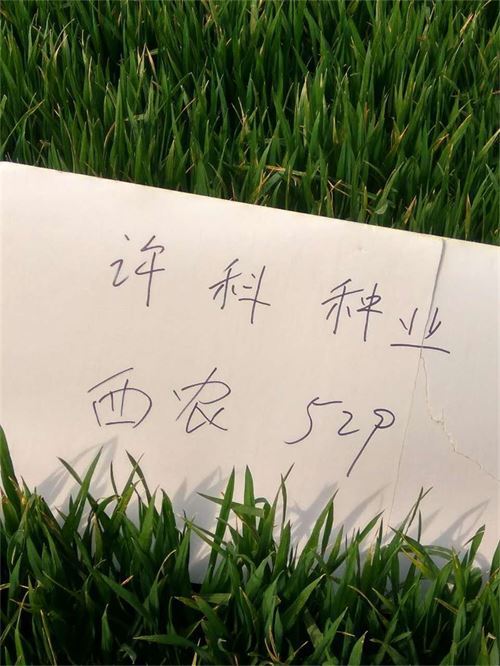 许科种业
西农 529